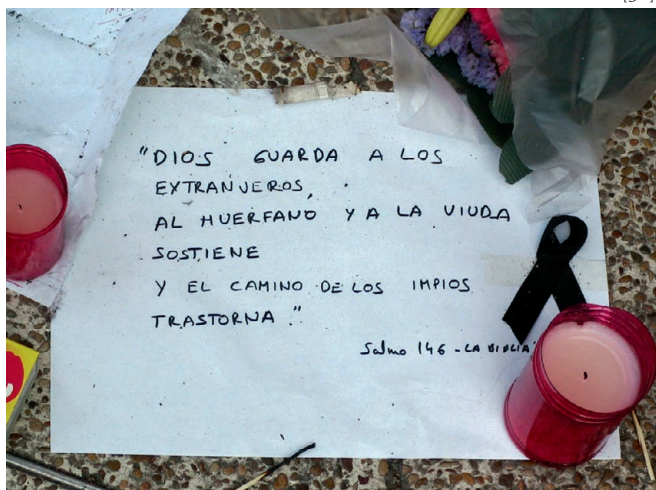 "DIOS GUARDA A LOS
EXTRANJEROS,
AL HUERFANO Y A LA VIUDA
SOSTIENE
Y EL CAMINO DE LOS IMPIOS
TRASTORNA."
Salmo 146 - LA BIBLIA